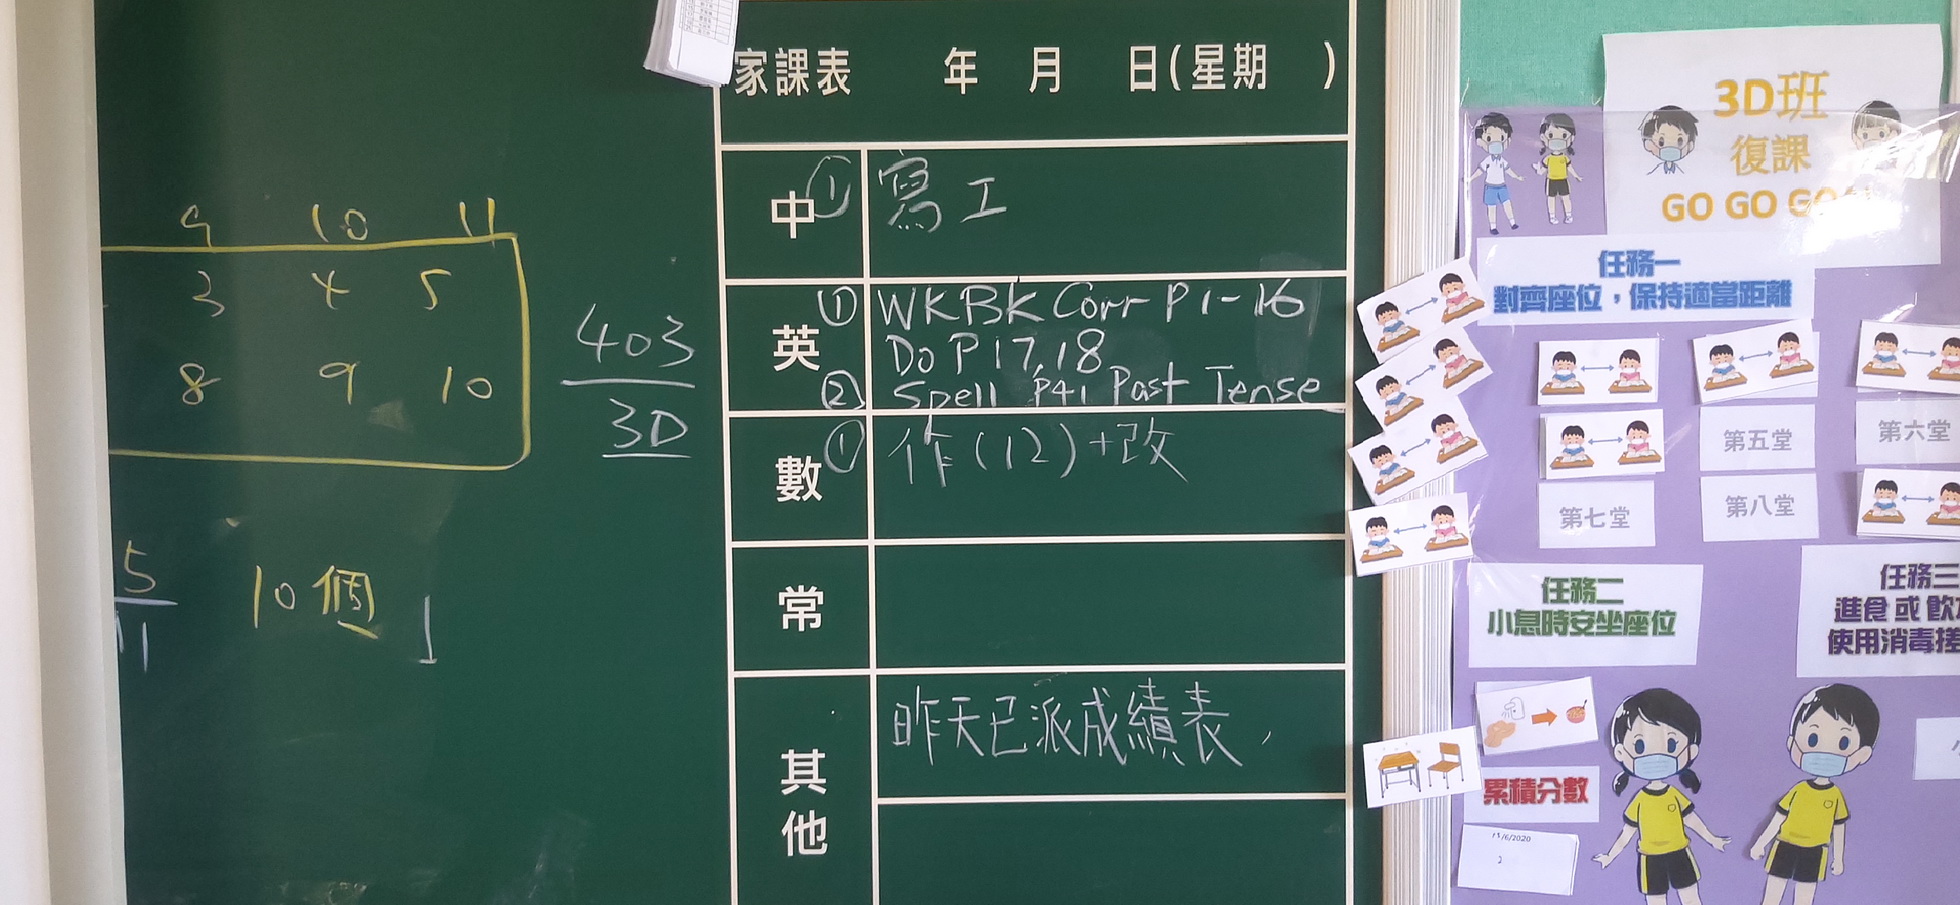 9 10 11
3 4 5
8 9 10
5
11
10個
403
3D
家課表 年 月 日(星期 )
中 ① 寫工
英 ① WKBK Corr P1-16
Do P17,18
② Spell P41 Past Tense
數 ① 作(12)+改
常
其他 昨天已派成績表,
3D班
復課
GO GO GO
任務一
對齊座位，保持適當距離
第五堂
第六堂
第七堂
第八堂
任務二
小息時安坐座位
任務三
進食或飲
使用消毒搓
累積分數
15/6/2020
2